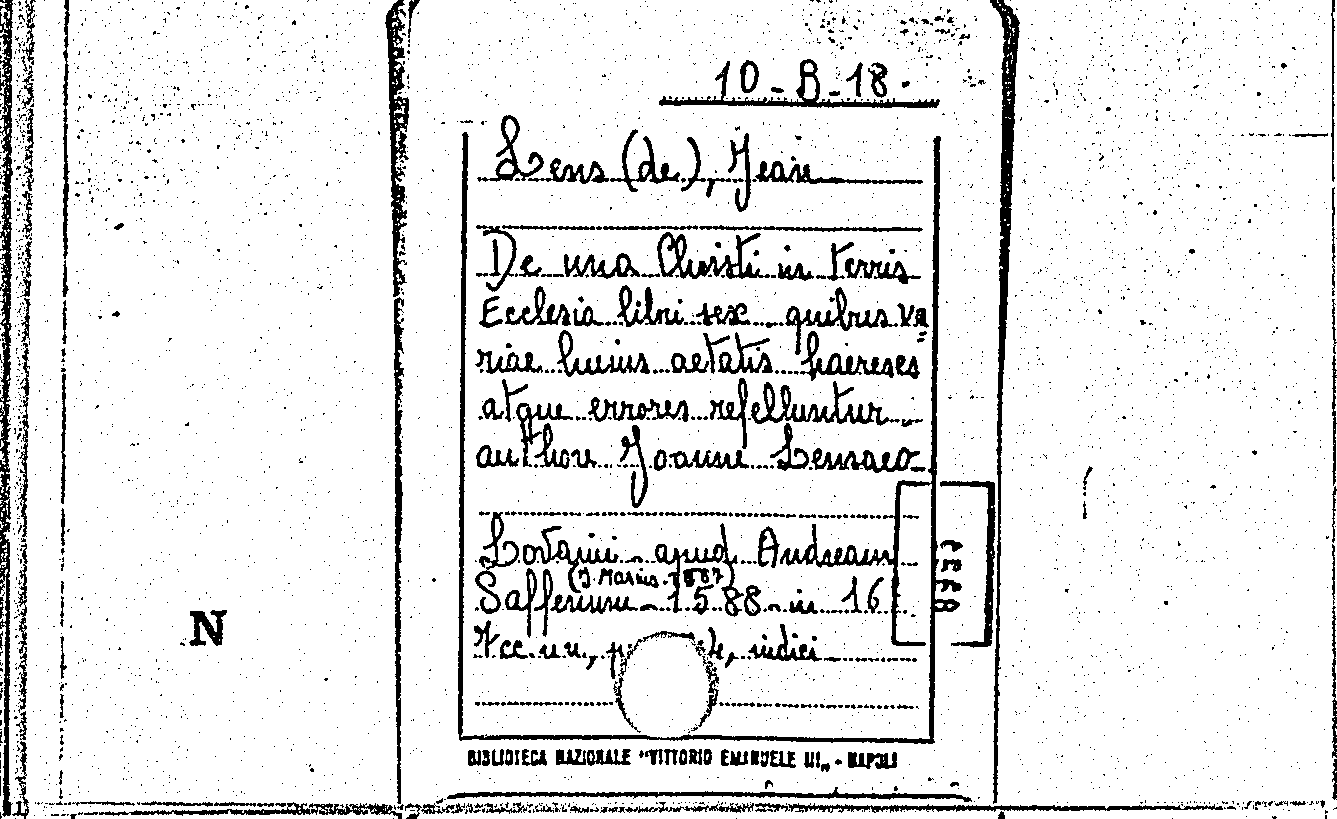 10-B-18.
Lens (de), Jean
De una Christi in terris
Ecclesia libri sex quibus va=
riae huius aetatis haereses
atque errores refelluntur
authore Joanne Lensaeo
Lovanii - apud Andream
(J. Masius. 1587)
Saffenum - 1588 - in 16
N
indici
BIBLIOTECA NAZIONALE "VITTORIO EMANUELE III" - NAPOLI